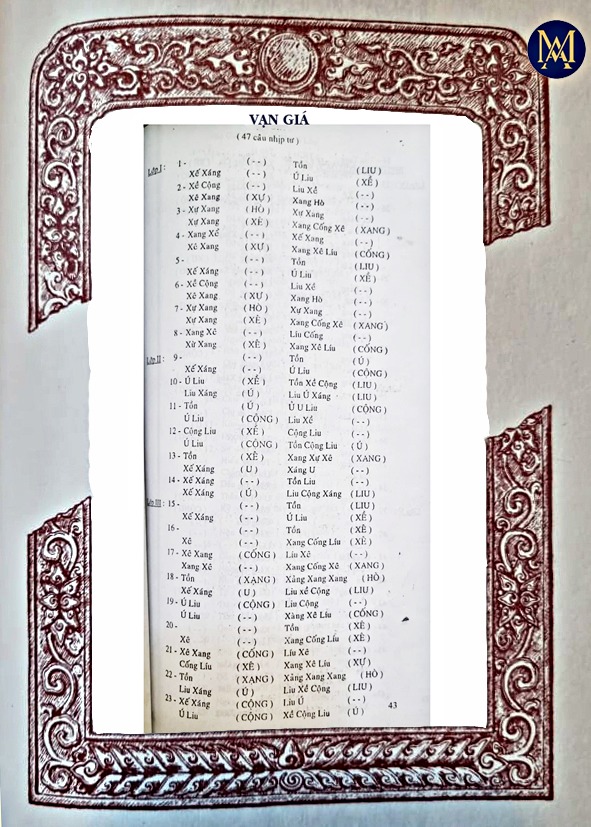 MA
VẠN GIÁ
( 47 câu nhịp tư )
Lớp I : 1 - (--) Tồn (LIU)
Xế Xáng (--) Ú Liu (XỀ)
2 - Xề Cộng (--) Liu Xề (--)
Xê Xang (XỰ) Xang Hò (--)
3 - Xự Xang (HÒ) Xư Xang (--)
Xư Xang (XÊ) Xang Cống Xê (XANG)
4 - Xang Xề (--) Xế Xang (--)
Xê Xang (XƯ) Xang Xê Liu (CỐNG)
5 - (--) Tồn (LIU)
Xế Xáng (--) Ú Liu (XỀ)
6 - Xề Cộng (--) Liu Xề (--)
Xê Xang (XỰ) Xang Hò (--)
7 - Xự Xang (HÒ) Xư Xang (--)
Xư Xang (XÊ) Xang Cống Xê (XANG)
8 - Xang Xê (--) Líu Cống (--)
Xừ Xang (XÊ) Xang Xê Líu (CỐNG)
Lớp II : 9 - (--) Tồn (Ú)
Xế Xáng (--) Ú Liu (CỘNG)
10 - Ú Liu (XỀ) Tồn Xề Cộng (LIU)
Liu Xáng (Ú) Liu Ú Xáng (LIU)
11 - Tồn (Ú) Ú U Liu (CỘNG)
Ú Liu (CỘNG) Liu Xề (--)
12 - Cộng Liu (XỀ) Cộng Liu (--)
Ú Liu (CỘNG) Tồn Cộng Liu (Ú)
13 - Tồn (XÊ) Xang Xự Xê (XANG)
Xế Xáng (U) Xáng U (--)
14 - Xế Xáng (--) Tồn Liu (--)
Xế Xáng (Ú) Liu Cộng Xáng (LIU)
Lớp III : 15 - (--) Tồn (LIU)
Xế Xáng (--) Ú Liu (XỀ)
16 - (--) Tồn (XÊ)
Xê (--) Xang Cống Líu (XÊ)
17 - Xê Xang (CỐNG) Líu Xê (--)
Xang Xê (--) Xang Cống Xê (XANG)
18 - Tồn (XANG) Xảng Xang Xang (HÒ)
Xế Xáng (U) Liu xề Cộng (LIU)
19 - Ú Liu (CỘNG) Liu Cộng (--)
Ú Liu (--) Xàng Xê Líu (CỐNG)
20 - (--) Tồn (XÊ)
Xê (--) Xang Cống Líu (XÊ)
21 - Xê Xang (CỐNG) Líu Xê (--)
Cống Líu (XÊ) Xang Xê Líu (XỰ)
22 - Tồn (XANG) Xảng Xang Xang (HÒ)
Liu Xáng (Ú) Liu Xề Cộng (LIU)
23 - Xế Xáng (CỘNG) Liu Ú (--)
Ú Liu (CỘNG) Xề Cộng Liu (Ú)
43